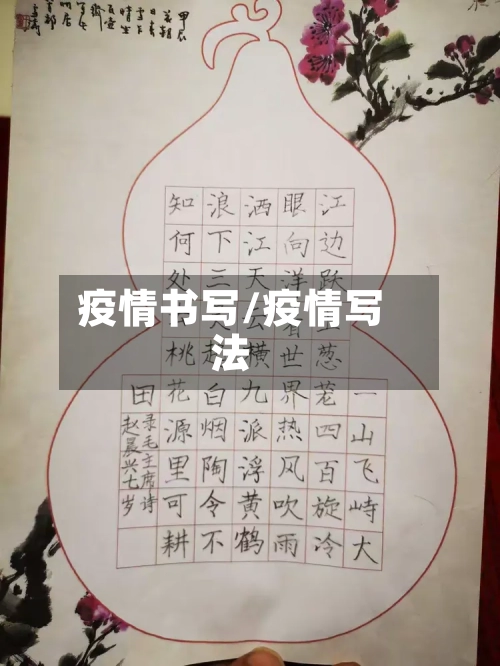 疫情书写/疫情写
法
甲辰
一山飞峙大
江边跃葱茏四百旋冷
眼向洋看世界热风吹雨
洒江天云横九派浮黄鹤
浪下三起白烟陶令不
知何处桃花源里可耕
田
录毛主席诗
赵晨兴七岁